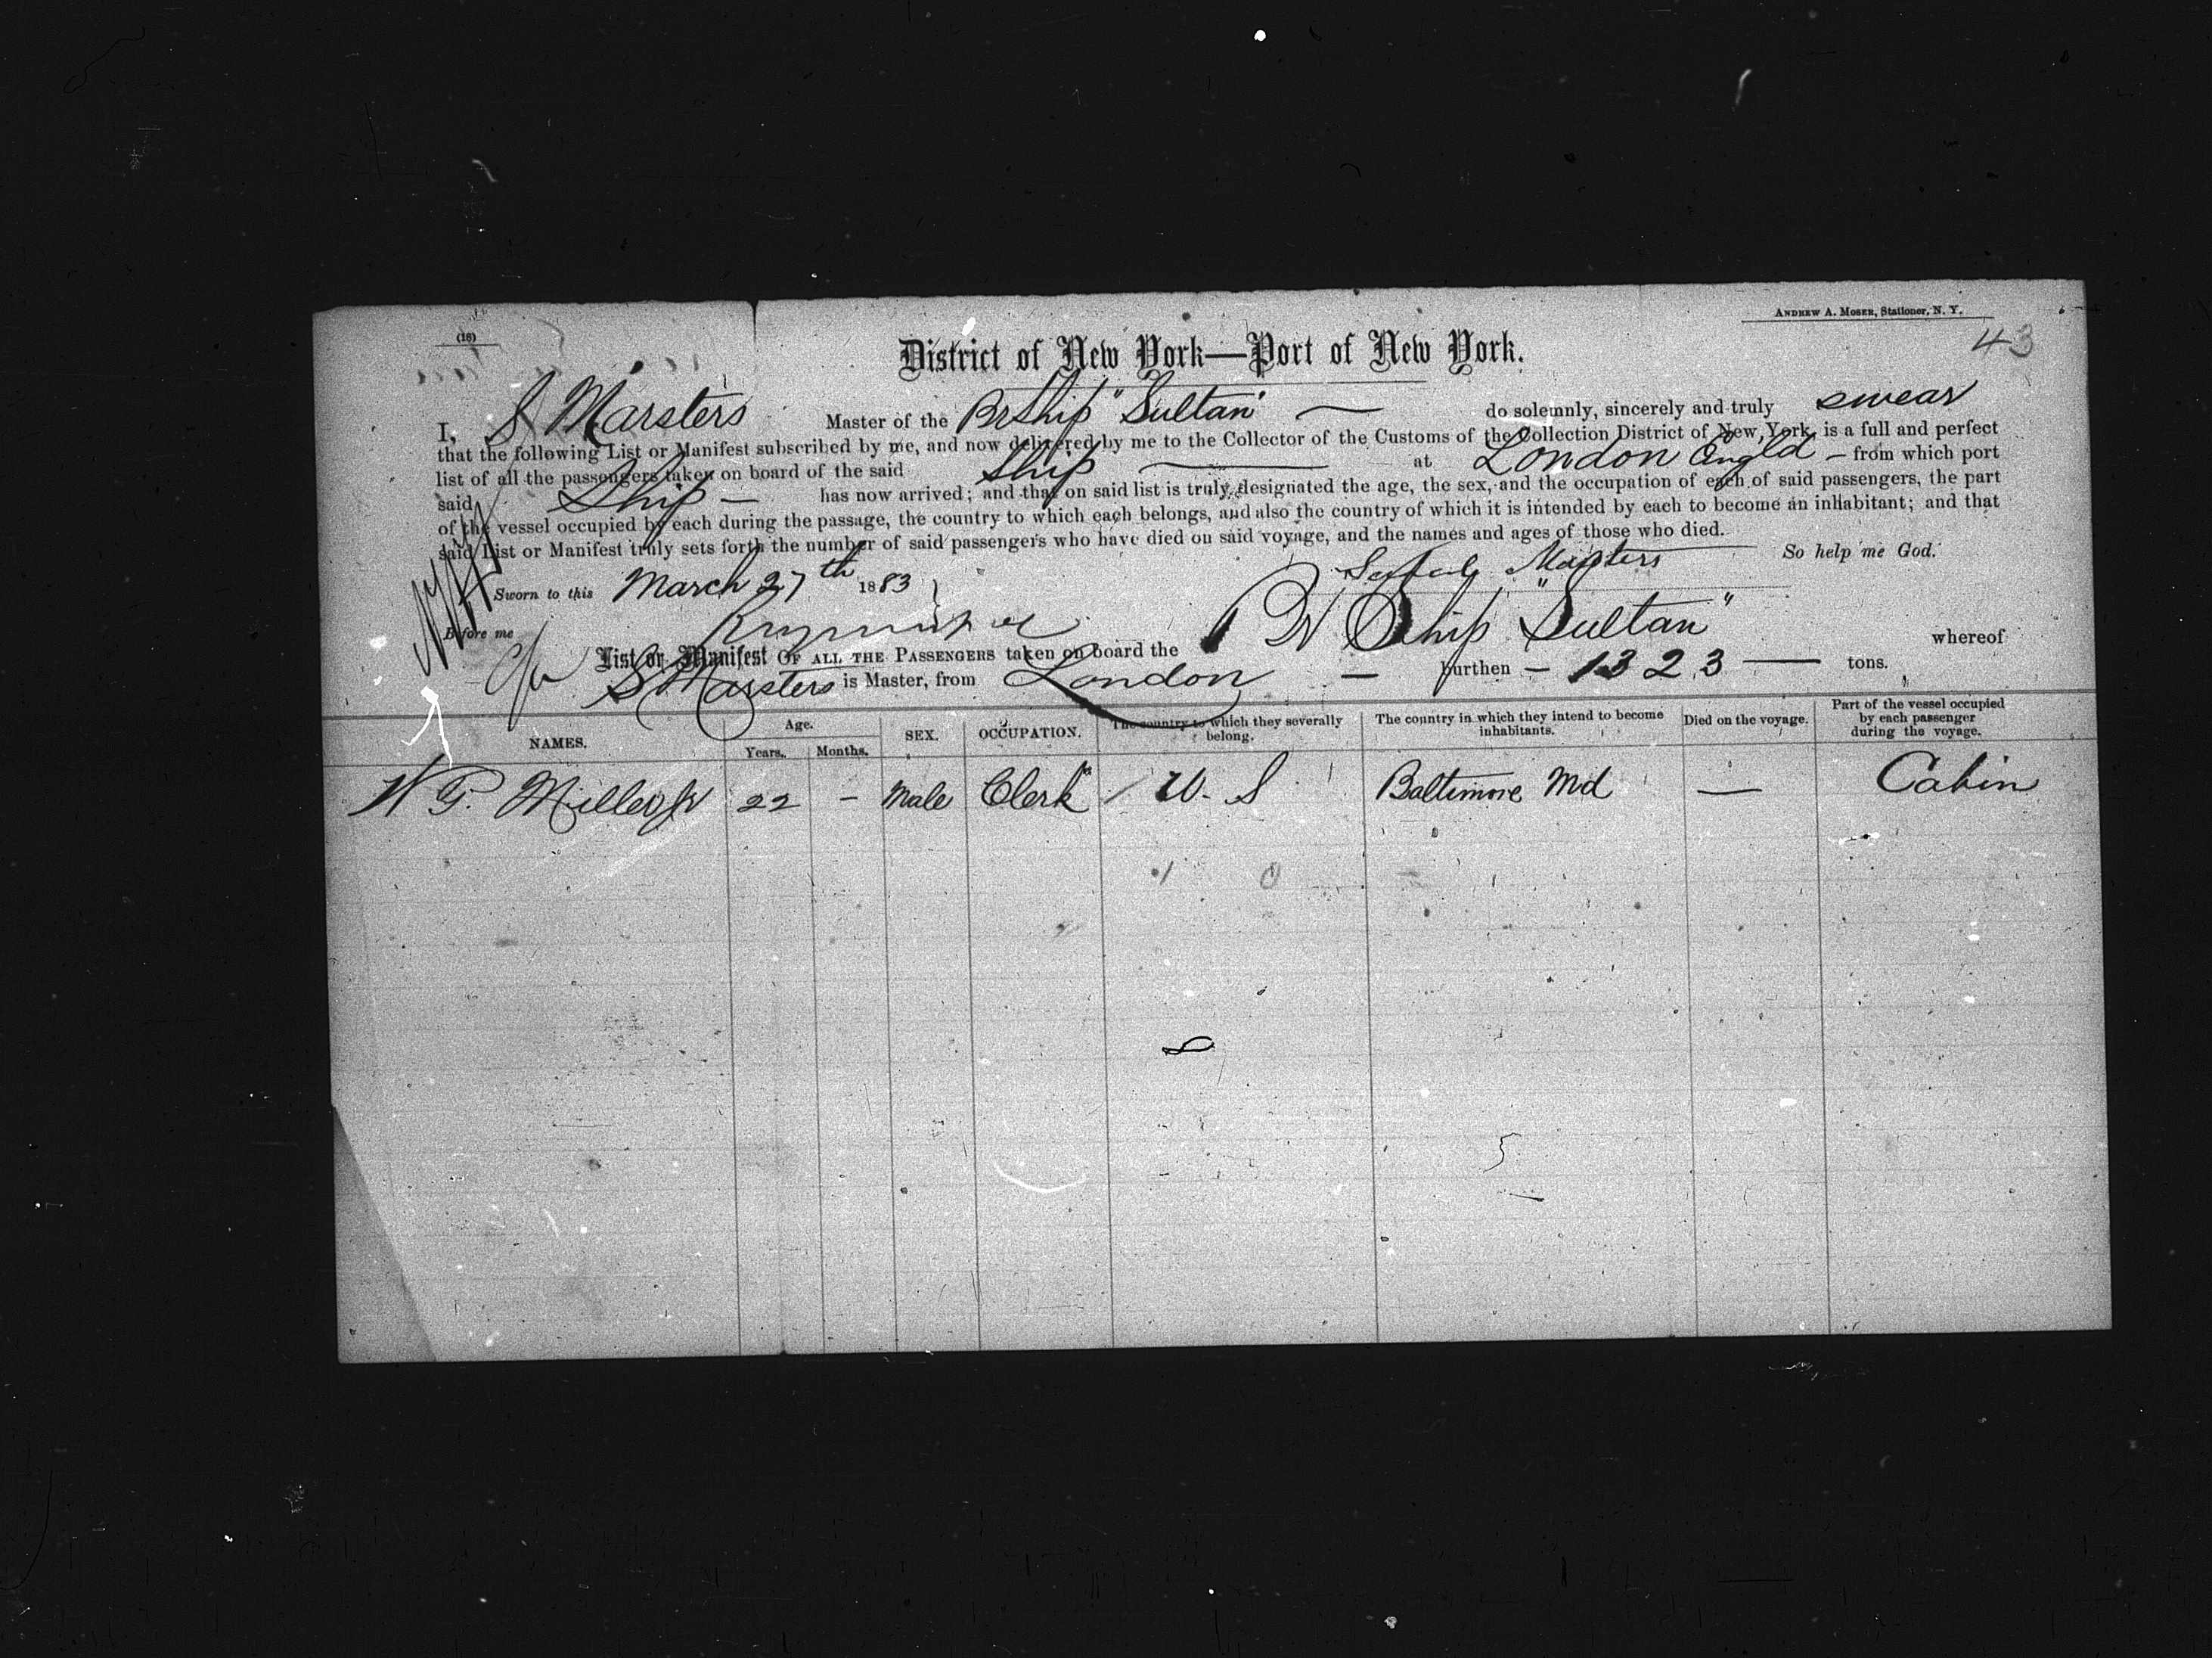 (16)
ANDREW A. MOSER, Stationer, N. Y.
43
District of New York—Port of New York.
I, S Marsters Master of the Br Ship "Sultan" — do solemnly, sincerely and truly swear
that the following List or Manifest subscribed by me, and now delivered by me to the Collector of the Customs of the Collection District of New York, is a full and perfect
list of all the passengers taken on board of the said Ship — at London Engld — from which port
said Ship — has now arrived; and that on said list is truly designated the age, the sex, and the occupation of each of said passengers, the part
of the vessel occupied by each during the passage, the country to which each belongs, and also the country of which it is intended by each to become an inhabitant; and that
said List or Manifest truly sets forth the number of said passengers who have died on said voyage, and the names and ages of those who died.
So help me God.
Marsters
Sworn to this March 27th 1883
Before me
List or Manifest OF ALL THE PASSENGERS taken on board the Br Ship "Sultan" whereof
S Marsters is Master, from London — burthen — 1323 — tons.
NAMES. Age. Years. Months. SEX. OCCUPATION. The country to which they severally belong. The country in which they intend to become inhabitants. Died on the voyage. Part of the vessel occupied by each passenger during the voyage.
W G. Miller Jr 22 - Male Clerk / U. S Baltimore Md — Cabin
1 0